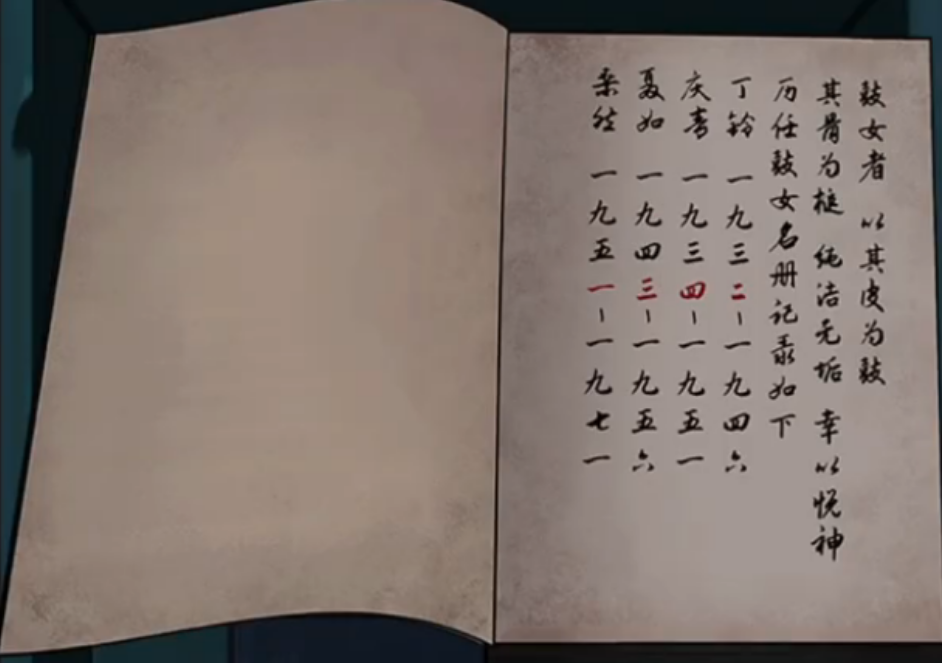 鼓女者 以其皮为鼓
其骨为槌 纯洁无垢 幸以悦神
历任鼓女名册记录如下
丁铃 一九三二-一九四六
庆喜 一九三四-一九五一
聂如 一九四三-一九五六
采然 一九五一-一九七一